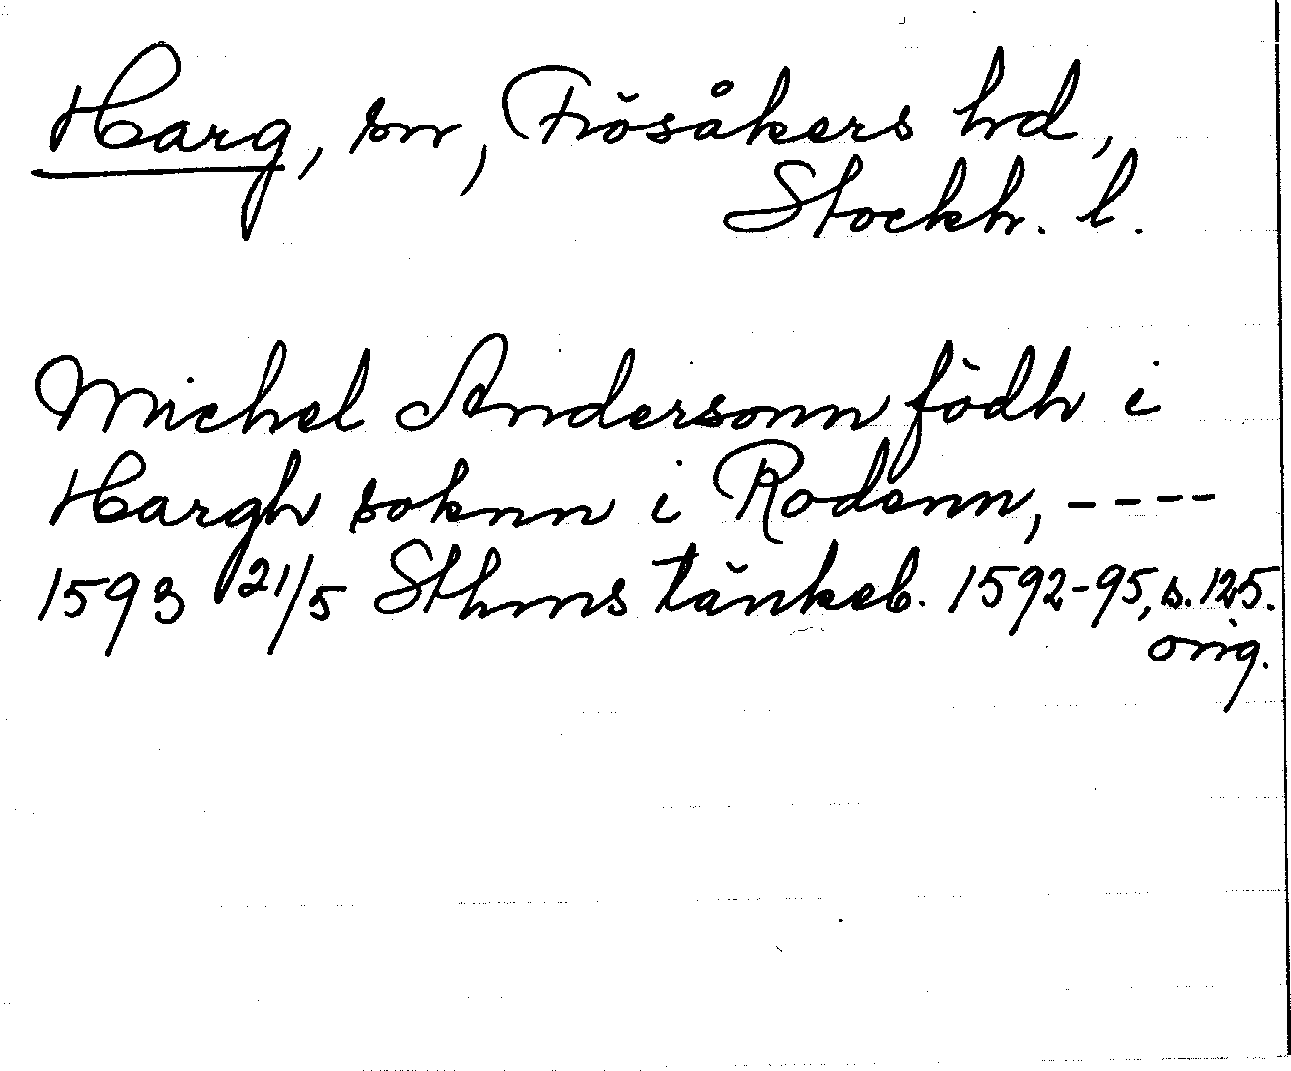 Harg, sn, Frösåkers hd,
Stockh. l.
Michel Andersonn födh i
Hargh soknn i Rodenn, ----
1593 21/5 Sthms tänkeb. 1592-95, s. 125.
orig.